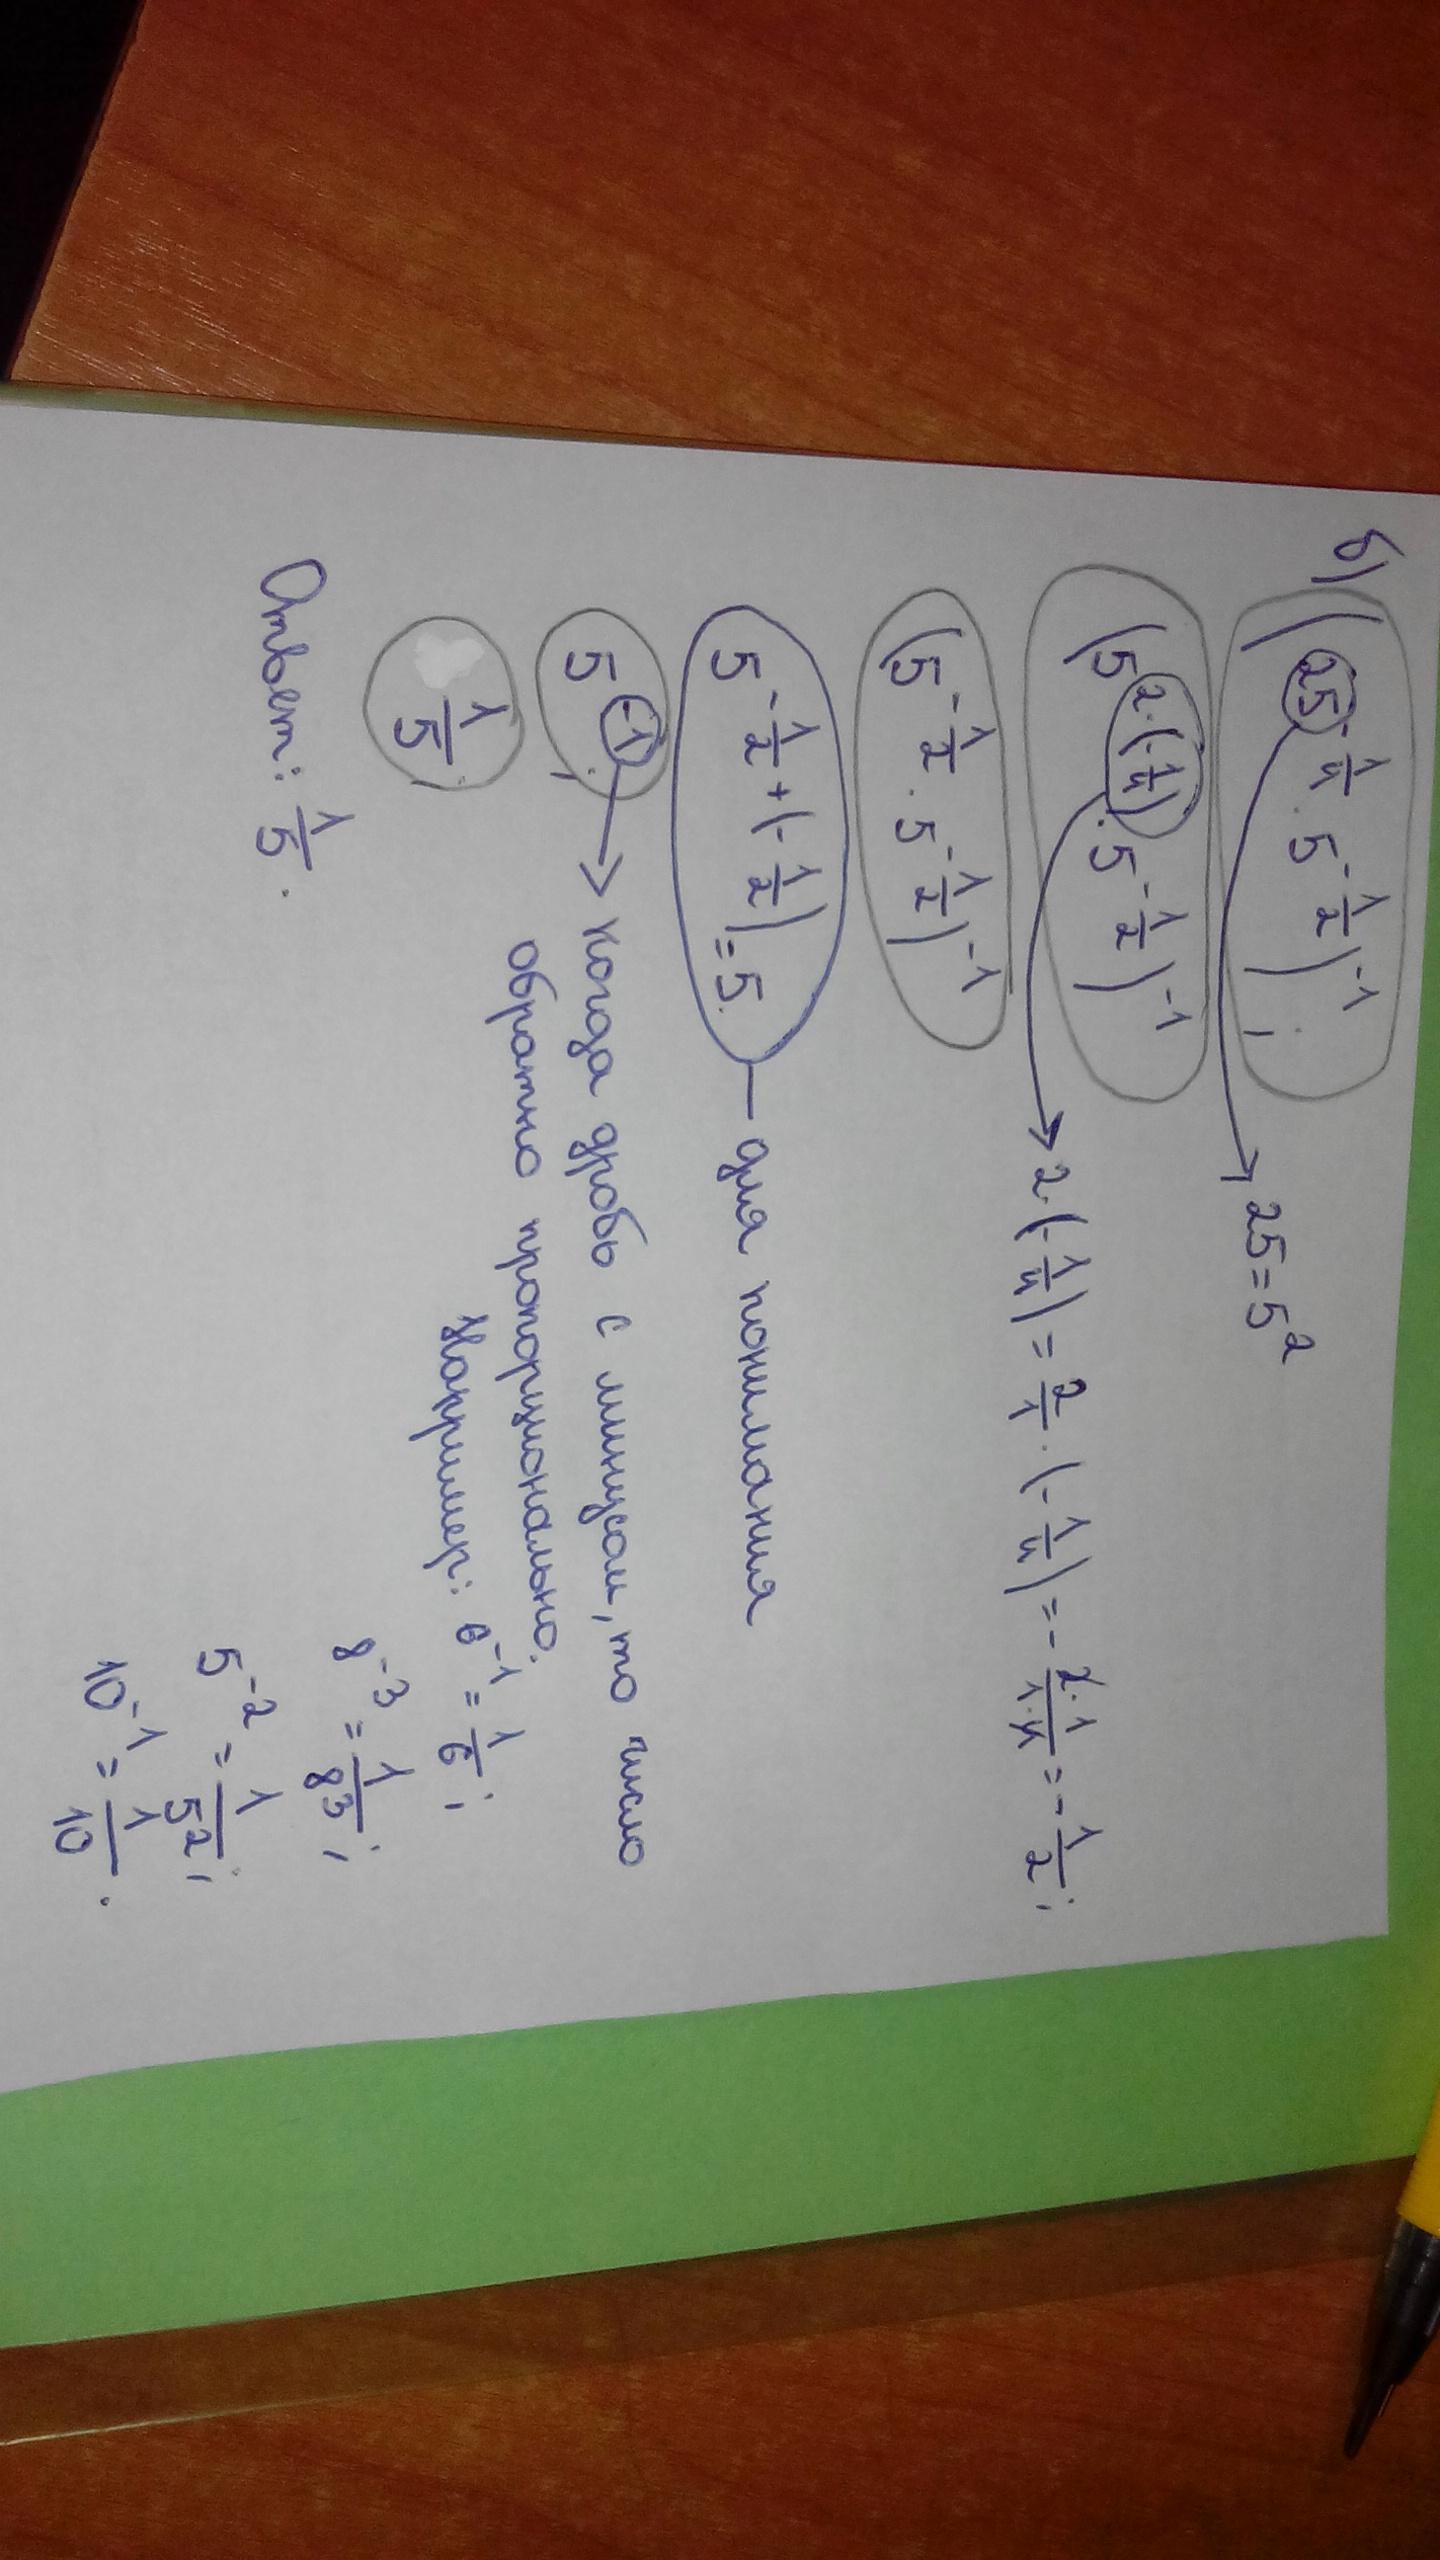 б) (25^{-1/4} · 5^{-1/2})^{-1}; → 25 = 5^2
(5^{2·(-1/4)} · 5^{-1/2})^{-1} → 2·(-1/4) = 2/1 · (-1/4) = - 2·1/1·4 = - 1/2;
(5^{-1/2} · 5^{-1/2})^{-1}
5^{-1/2+(-1/2)} = 5. — для понимания
5^{-1}; → когда дробь с минусом, то число
обратно пропорционально.
1/5; Например: 6^{-1} = 1/6;
8^{-3} = 1/8^3;
Ответ: 1/5. 5^{-2} = 1/5^2;
10^{-1} = 1/10.